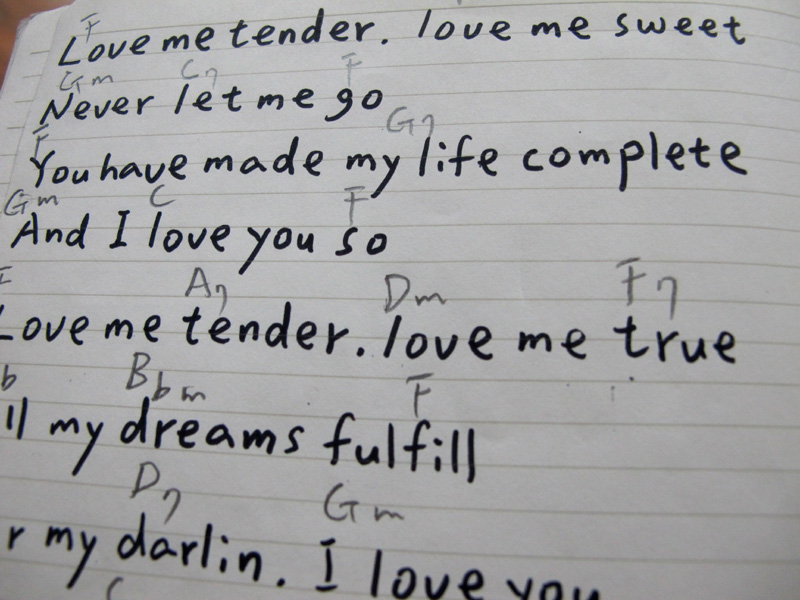 F
Love me tender. love me sweet
Gm C7 F
Never let me go
F G7
You have made my life complete
Gm C F
And I love you so
F A7 Dm F7
Love me tender. love me true
b Bbm F
ll my dreams fulfill
D7 Gm
r my darlin. I love you
C